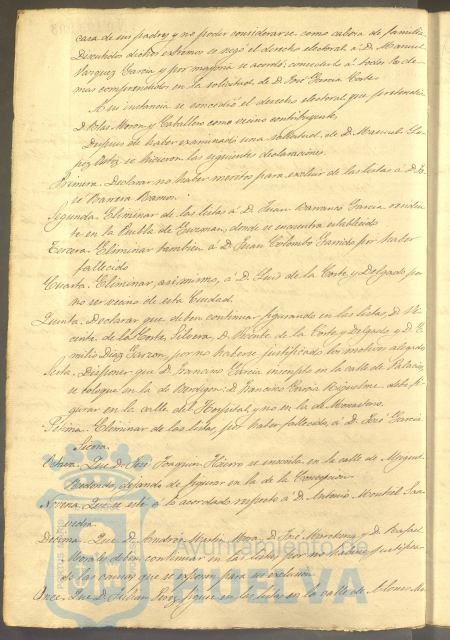 casa de sus padres y no poder considerarse como cabeza de familia.
Discutidos dichos extremos se negó el derecho electoral á D. Manuel
Vazquez Garcia y por mayoria se acordó concederlo á todos los de-
mas comprendidos en la solicitud de D. José Garcia Cortes
A su instancia se concedió el derecho electoral que pretendia
D. Blas Moron y Caballero como vecino contribuyente
Despues de haber examinado una solicitud de D. Manuel Lo-
pez se hicieron las siguientes declaraciones.
Primera. Declarar no haber meritos para excluir de las listas á D. Jo-
sé Barrera Ramon.
Segunda. Eliminar de las listas á D. Juan Barranco Garcia residen-
te en la Puebla de Guzman, donde se encuentra establecido
Tercera. Eliminar tambien á D. Juan Colombo Garrido por haber
fallecido
Cuarta. Eliminar, asimismo, á D. Luis de la Corte y Delgado por
no ser vecino de esta Ciudad.
Quinta. Declarar que deben continuar figurando en las listas D. Vi-
cente de la Corte, D. Vicente de la Corte y Delgado y D. E-
milio Diaz Garzon, por no haberse justificado los motivos alegados
Sesta. Disponer que D. Francisco Garcia incluido en la calle de Palacio,
se coloque en la de D. Francisco Garcia debe fi-
gurar en la calle del Hospital y no en la de Monasterio.
Setima. Eliminar de las listas, por haber fallecido, á D. José Garcia
Octava. Que D. José Joaquin se encuentra en la calle de Miguel
Redondo, dejando de figurar en la de la Concepcion
Novena. Que se esté á lo acordado respecto á D. Antonio Montiel Saa-
vedra.
Decima. Que D. Andrés Martin Mora, D. José Marchena y D. Rafael
Morales deben continuar en las listas por no haberse justificado
las causas que se exponen para su exclusion
Once. Que D. Julian Perez figure en las listas en la calle de Alonso
Ayuntamiento de
HUELVA